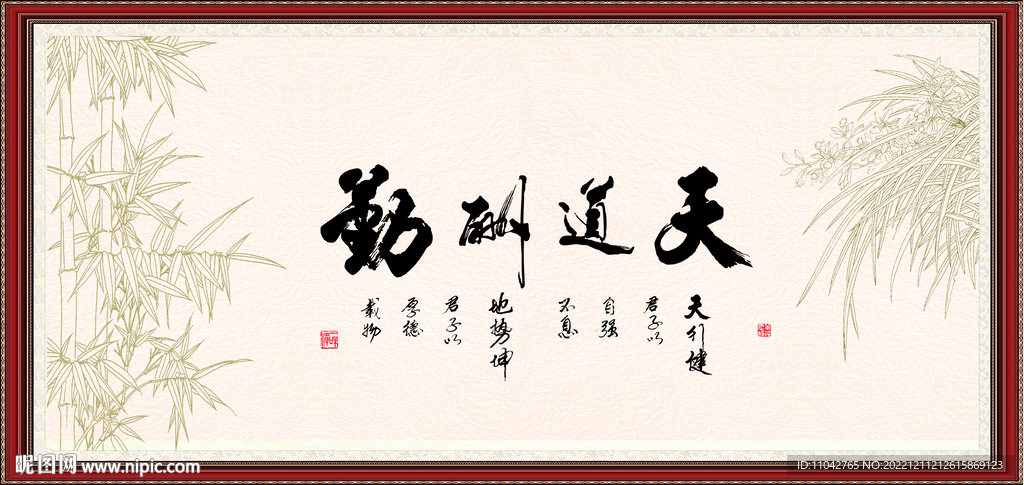 天道酬勤
天行健
君子以
自强
不息
地势坤
君子以
厚德
载物
昵图网 www.nipic.com
ID:11042765 NO:20221211212615869123